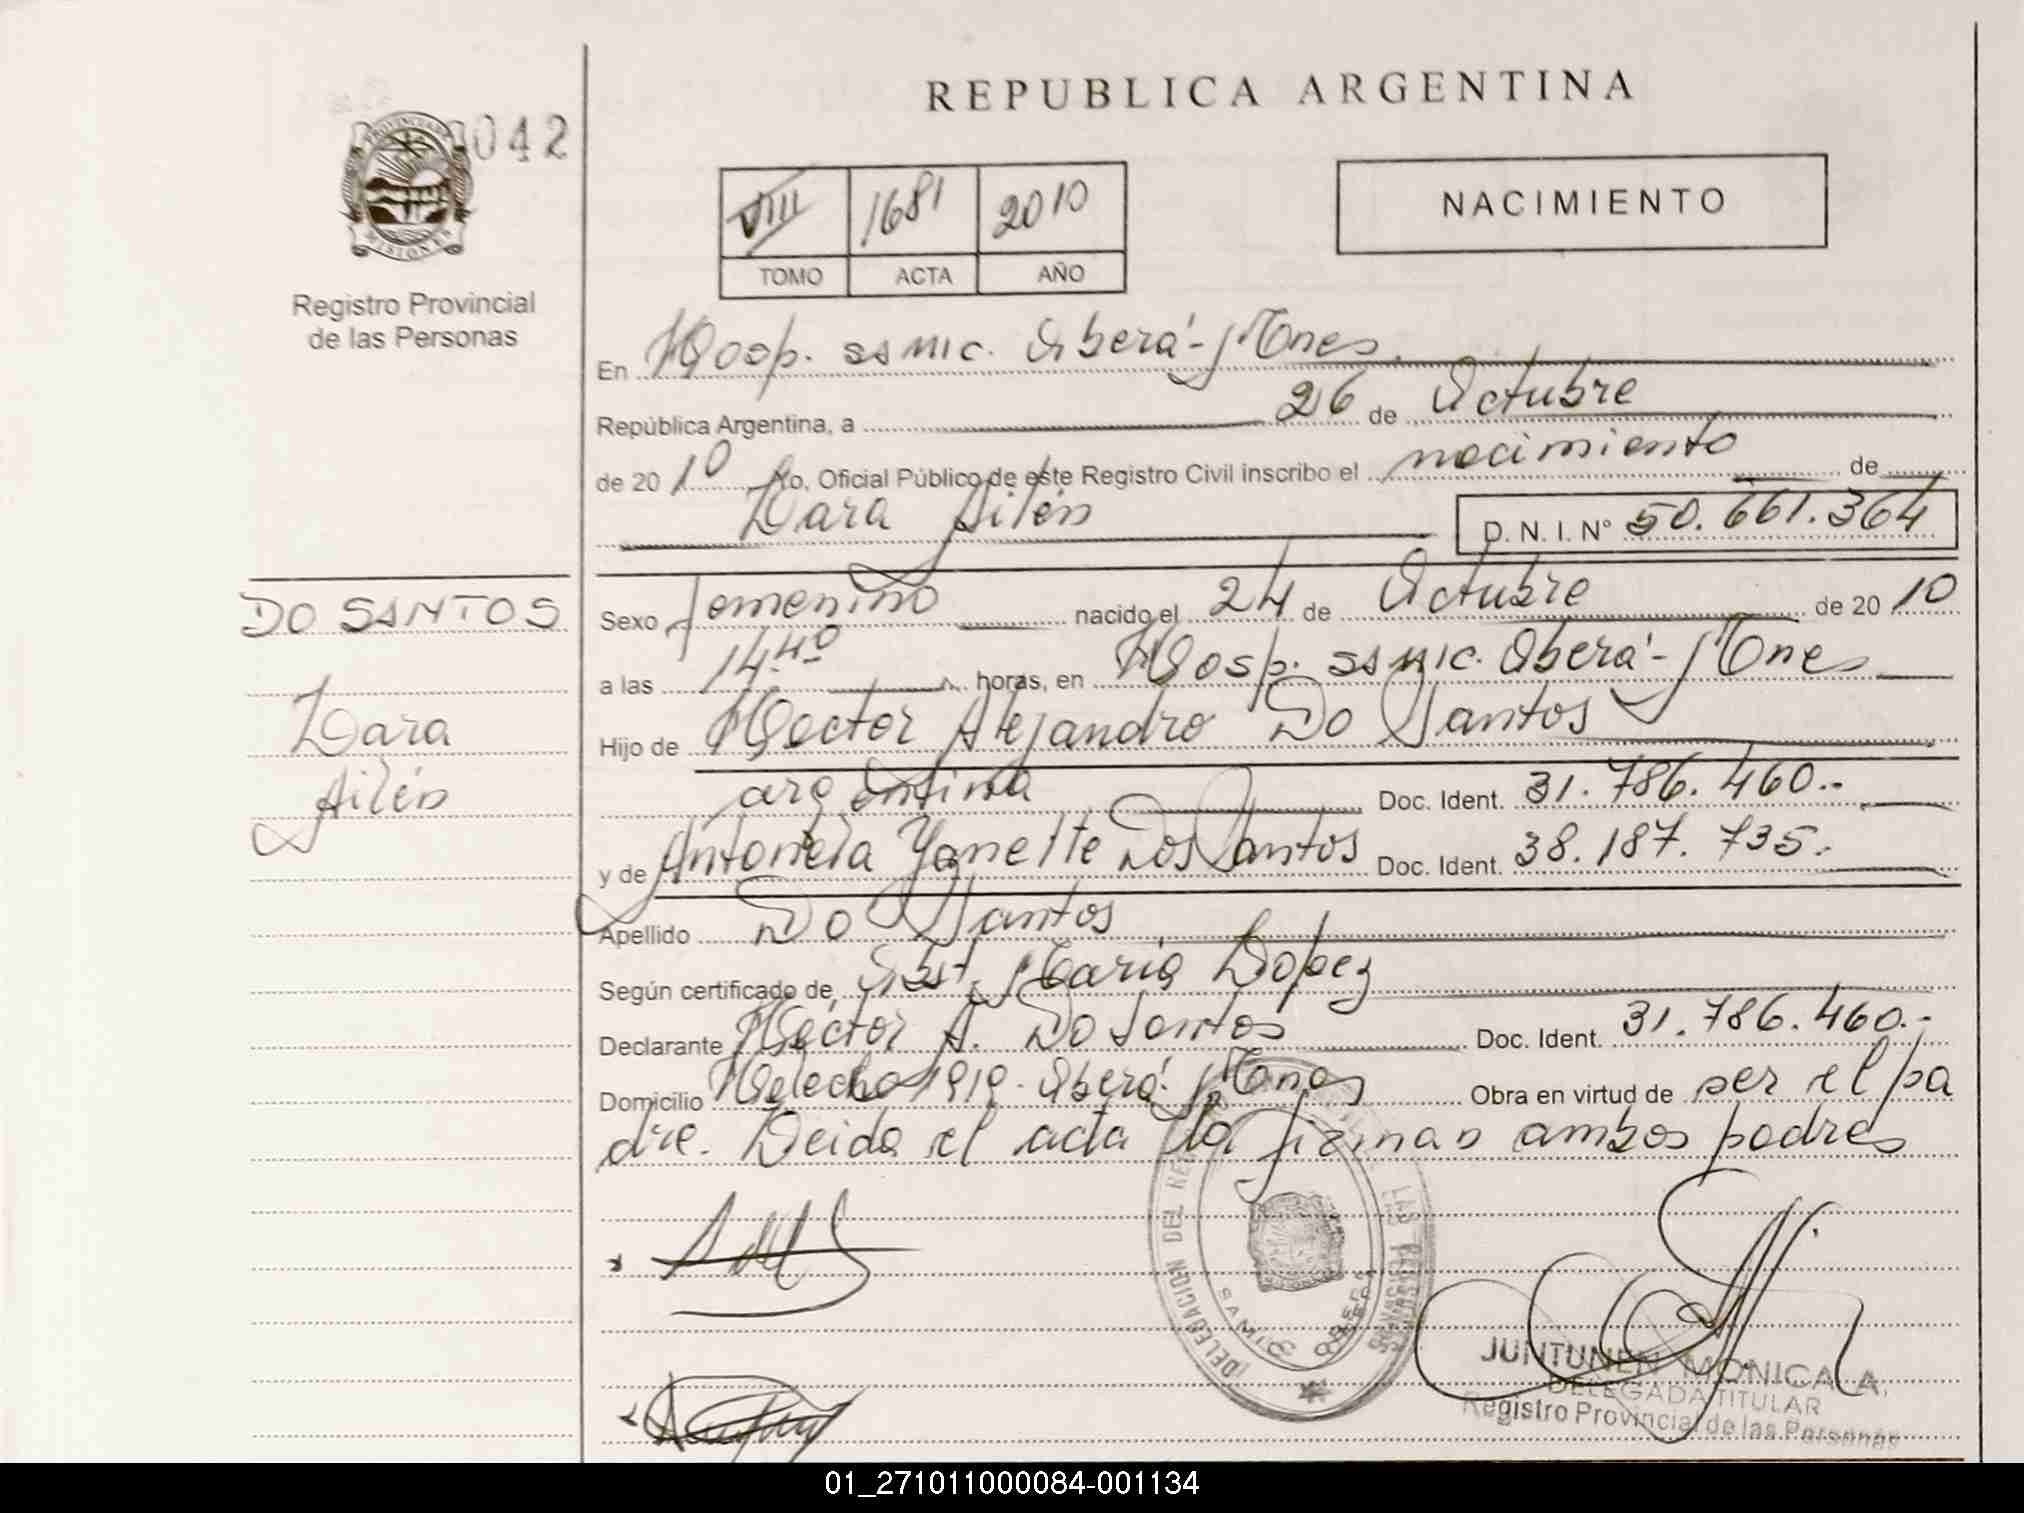 REPUBLICA ARGENTINA
042
PROVINCIA DE MISIONES
Registro Provincial
de las Personas
VIII 1681 2010
TOMO ACTA AÑO
NACIMIENTO
En Hosp. SAMIC. Oberá - Mnes.
República Argentina, a 26 de Octubre
de 20 10 Yo, Oficial Público de este Registro Civil inscribo el nacimiento de
Dara Ailén
D. N. I. Nº 50.661.364
DO SANTOS
Dara
Ailén
Sexo femenino nacido el 24 de Octubre de 20 10
a las 14.40 horas, en Hosp. SAMIC. Oberá - Mnes
Hijo de Hector Alejandro Do Santos
argentina Doc. Ident. 31.786.460.-
y de Antonela Yanette Dos Santos Doc. Ident. 38.187.735.-
Apellido Do Santos
Según certificado de Obst. Maria Lopez
Declarante Héctor A. Do Santos Doc. Ident. 31.786.460.-
Domicilio Helecho 1919. Oberá. Mnes Obra en virtud de ser el pa
dre. Leida el acta la firman ambos padres
DELEGACION DEL REG. LAS PERSONAS
SAMIC OBERA
JUNTUNEN MONICA A.
DELEGADA TITULAR
Registro Provincial de las Personas
01_271011000084-001134